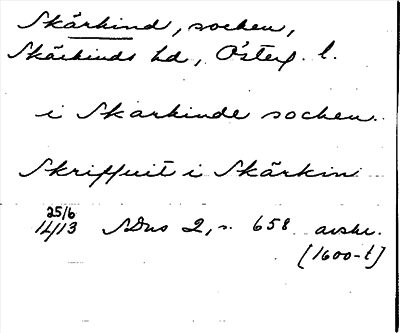 Skärkind, socken,
Skärkinds hd, Österg. l.
i Skarkinde socken.
Skriffuit i Skärkin
25/6
1413 SDns 2, s. 658 avskr.
[1600-t]